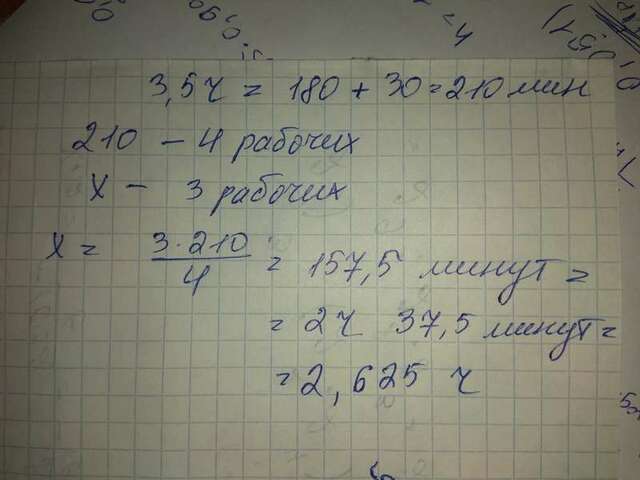 3,5 ч = 180 + 30 = 210 мин
210 – 4 рабочих
х – 3 рабочих
х = 3·210 / 4 = 157,5 минут =
= 2ч 37,5 минут =
= 2,625 ч